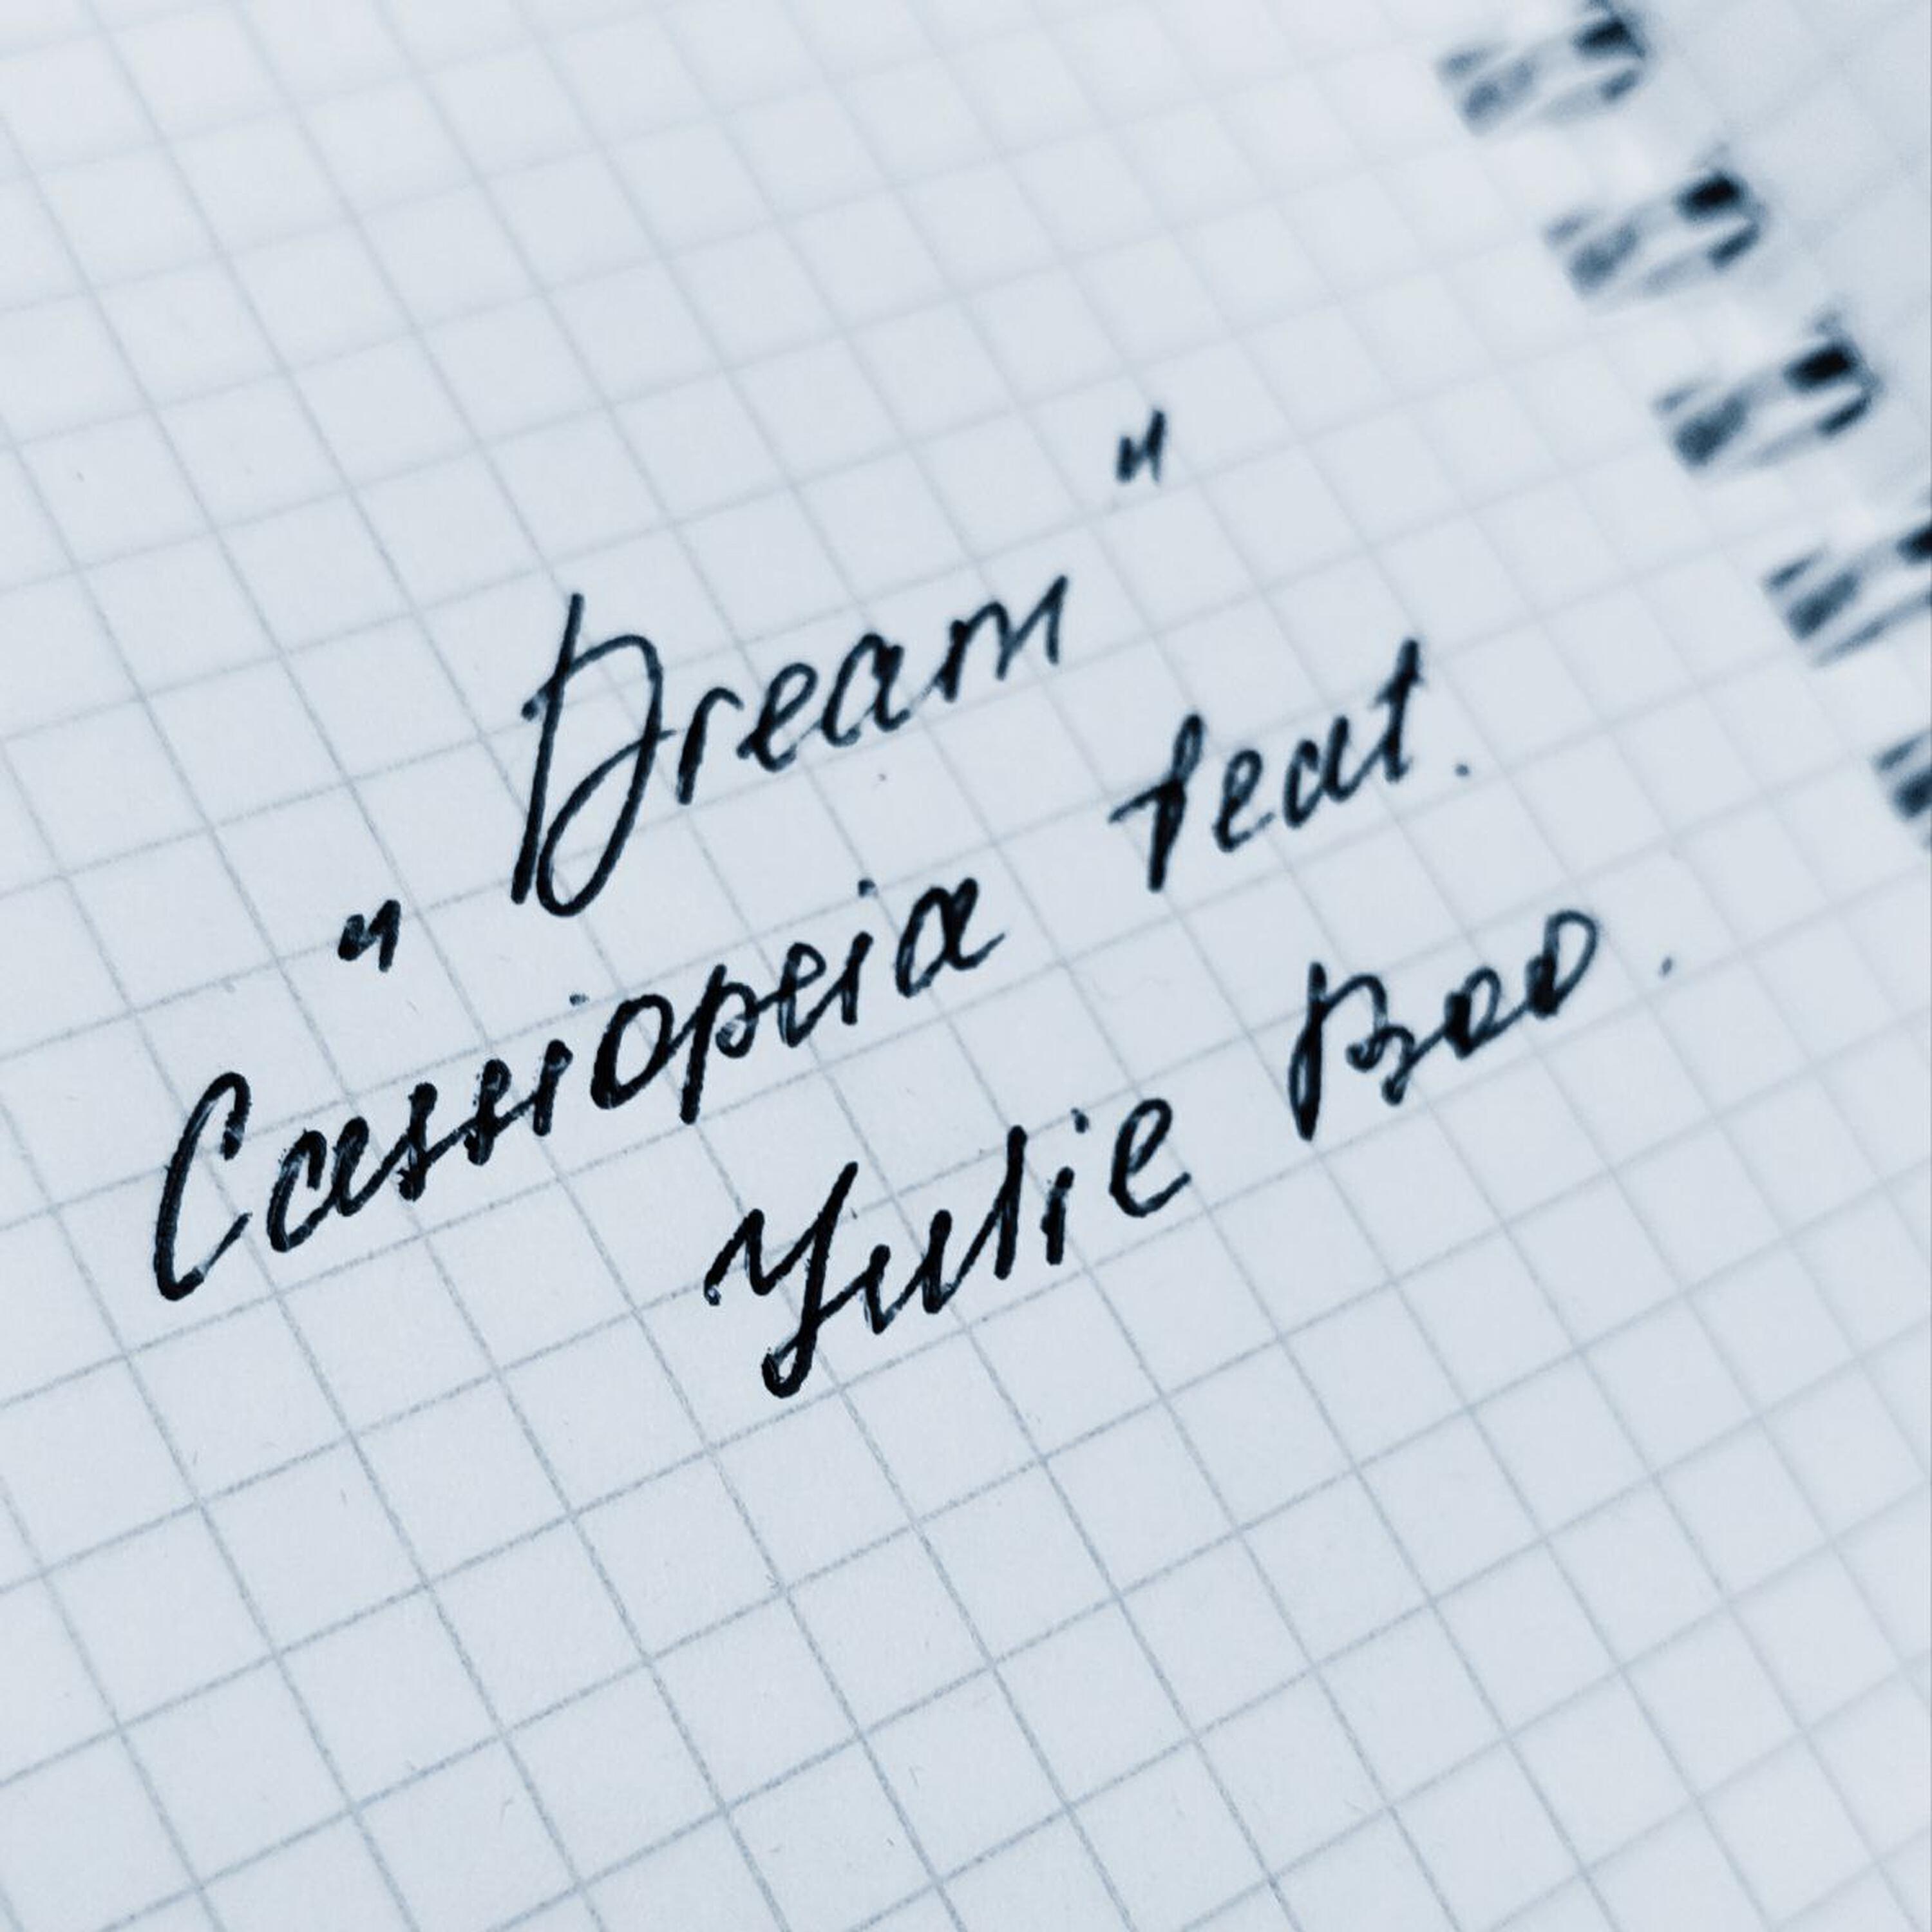 "Dream"
Cassiopeia feat.
Yulie Boo.